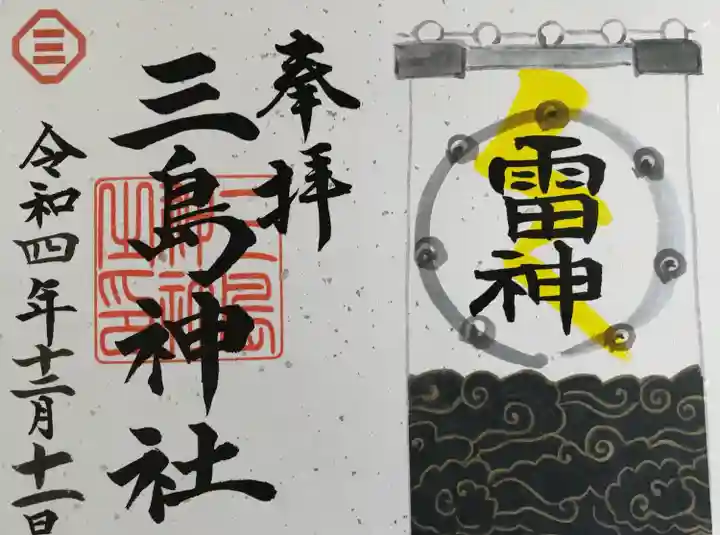 雷神
奉拝
三島神社
三島神社之印
令和四年十二月十一日
三